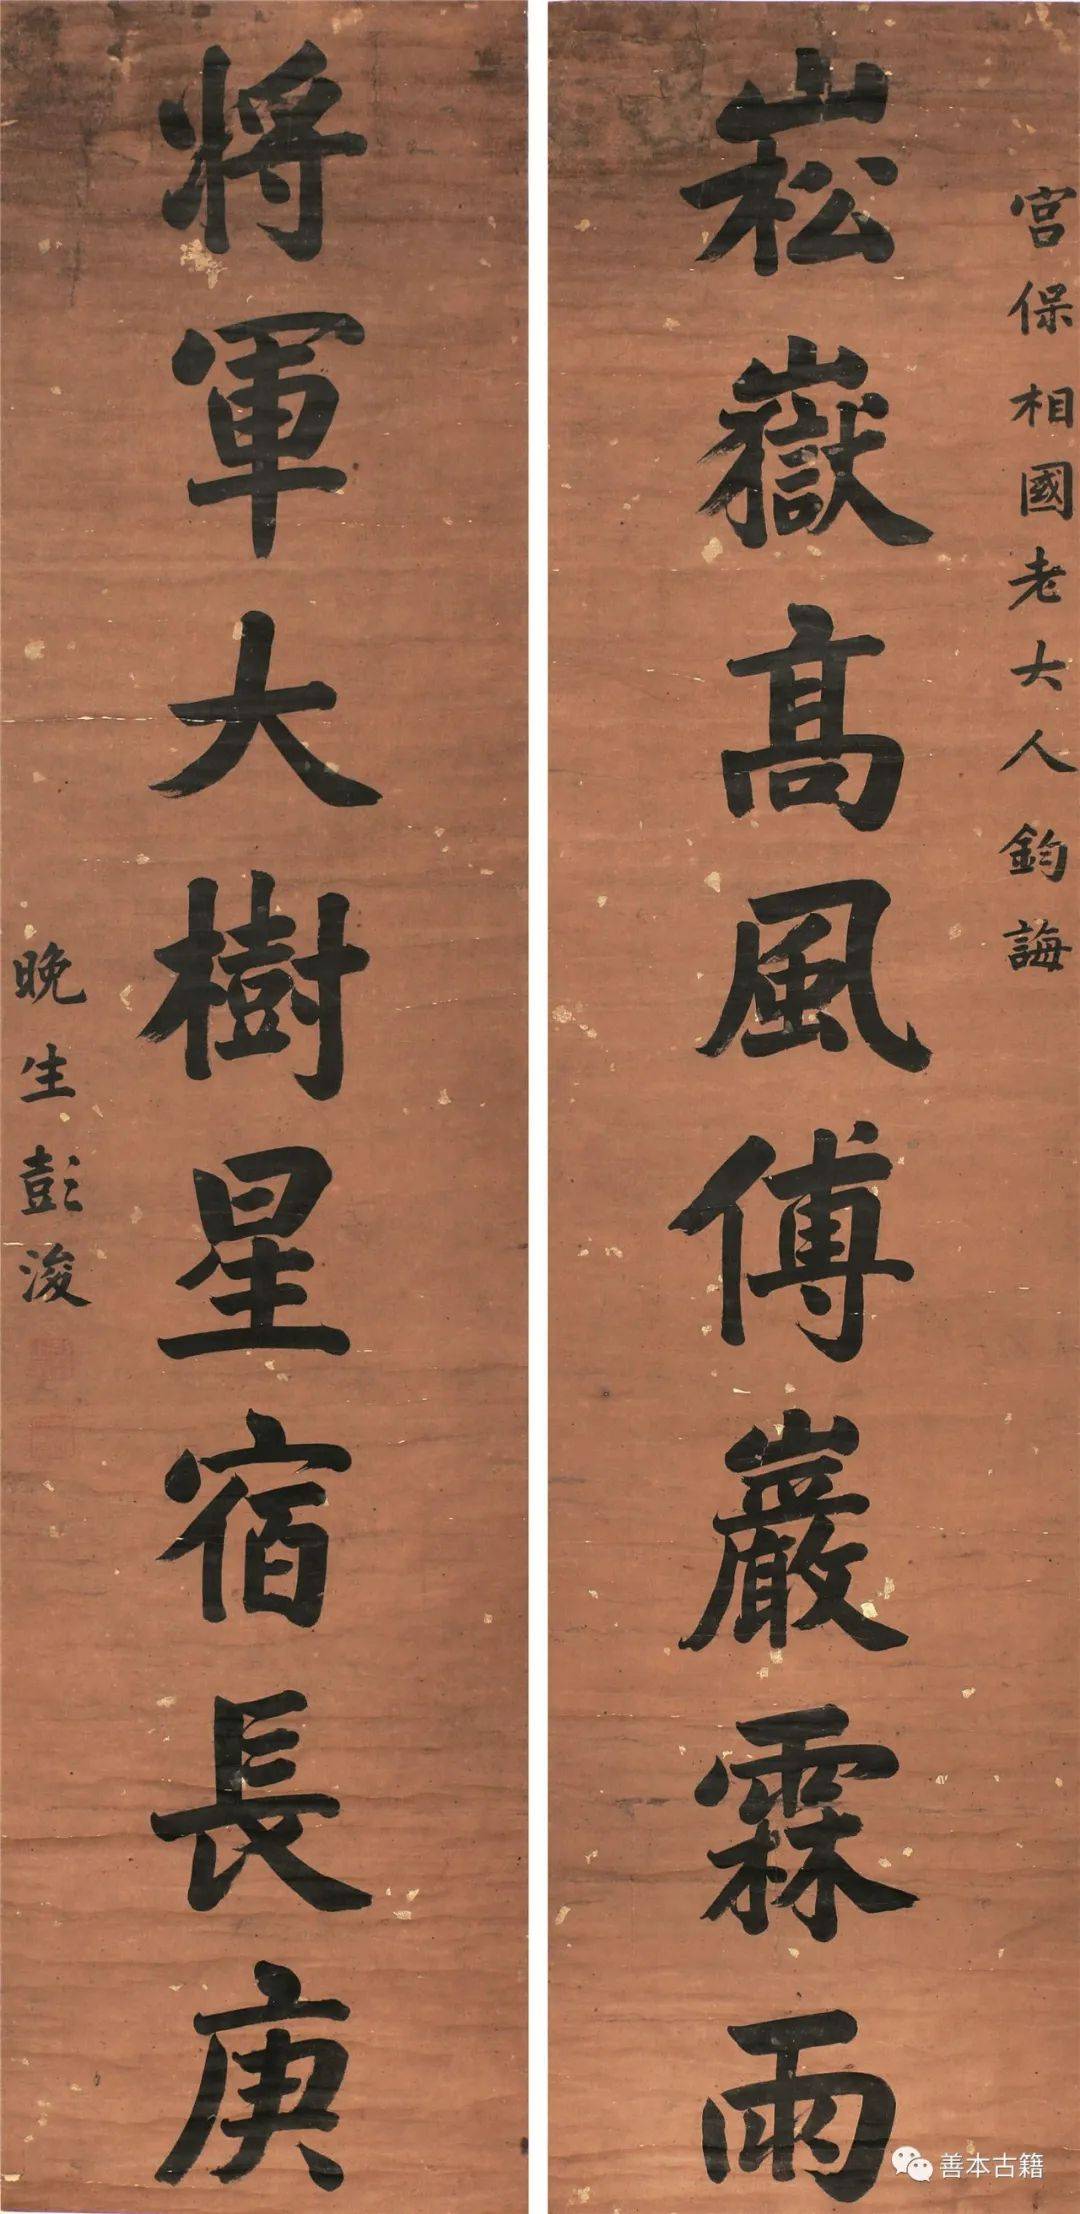 宮保相國老大人鈞誨
崧嶽高風傅巖霖雨
將軍大樹星宿長庚
晚生彭浚
善本古籍